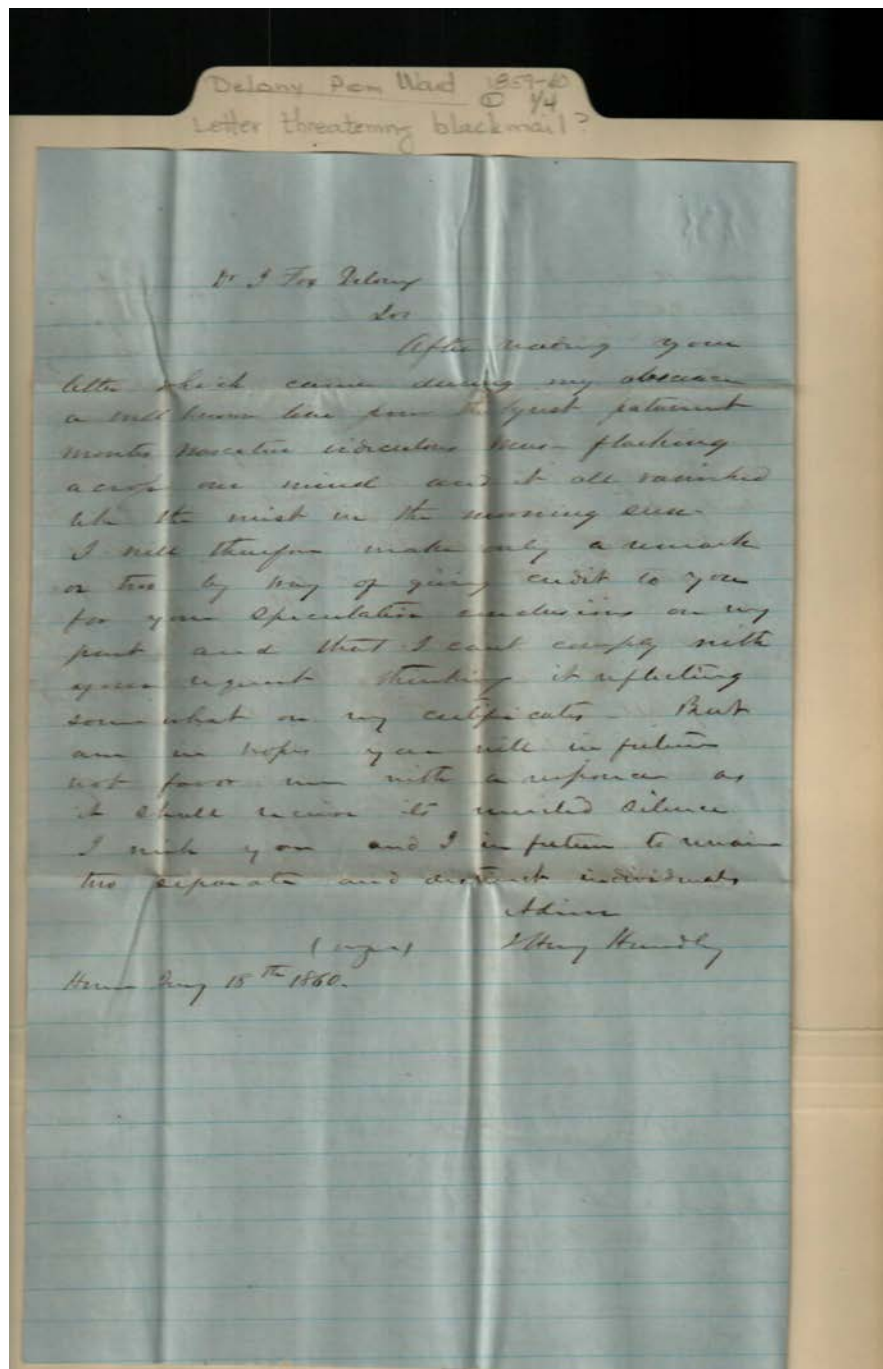 Delany Pem Wad 1859-60
① 1/4
Letter threatening blackmail?
Dr J Fox Delony
Sir
After reading your
letter which came during my absence
a well known line from the
montes nascetur ridiculous mus - flashing
across our mind and it all vanished
like the mist in the morning sun -
I will therefore make only a remark
or two by way of giving credit to you
for your speculation conclusions on my
part and that I cant comply with
your request thinking it reflecting
somewhat on my certificates - But
am in hopes you will in future
not favor me with a responce as
it shall receive its merited silence
I wish you and I in future to remain
two separate and distinct individuals
Adieu
Henry Hundly
Home 15th 1860.